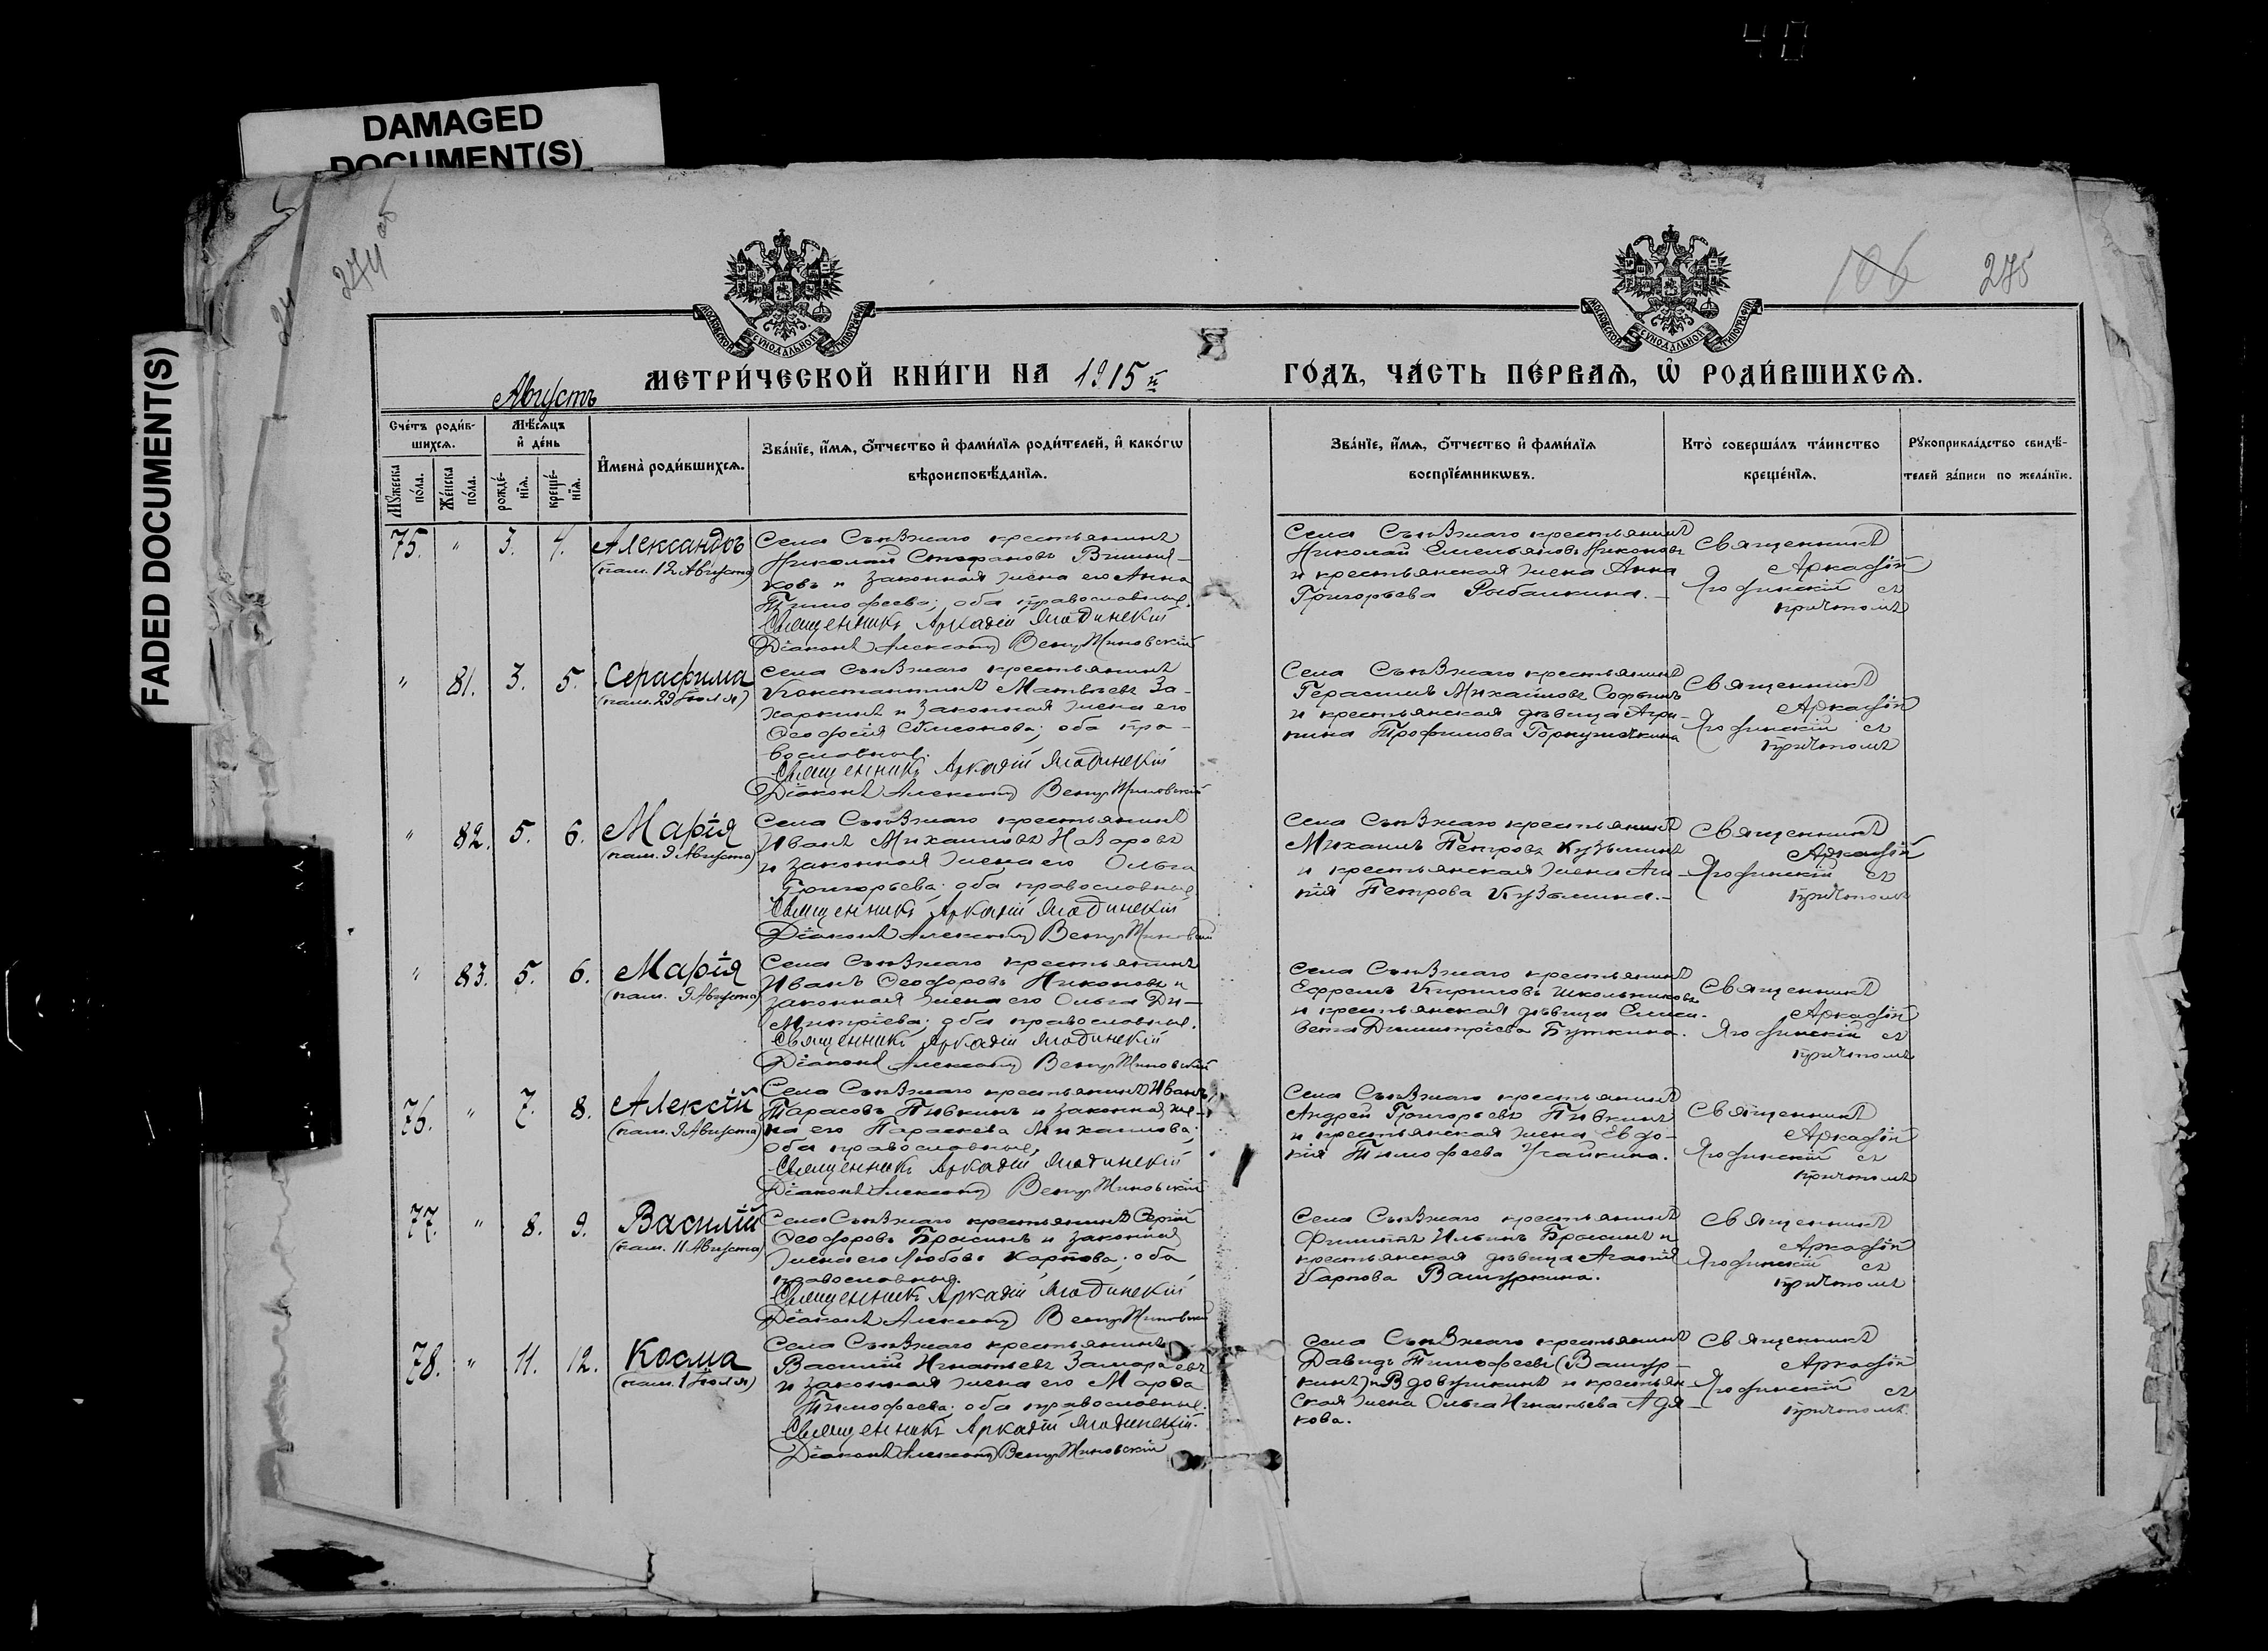 40
DAMAGED
DOCUMENT(S)
FADED DOCUMENT(S)
274 об
106
275
МОСКОВСКОЙ СѴНОДАЛЬНОЙ ТИПОГРАФІИ
МОСКОВСКОЙ СѴНОДАЛЬНОЙ ТИПОГРАФІИ
МЕТРИ́ЧЕСКОЙ КНИ́ГИ НА 1915 й
ГО́ДЪ, ЧА́СТЬ ПЕ́РВАѦ, Ѡ РОДИ́ВШИХСѦ.
Августъ
Сче́тъ роди́в-
шихсѧ.
Мѣ́сѧцъ
и҆ де́нь
Мꙋ́жеска
по́ла.
Же́нска
по́ла.
рожде́-
нїѧ.
креще́-
нїѧ.
И҆мена̀ роди́вшихсѧ.
Зва́нїе, и҆́мѧ, ѻ҆́тчество и҆ фами́лїѧ роди́телей, и҆ како́гѡ
вѣроисповѣ́данїѧ.
Зва́нїе, и҆́мѧ, ѻ҆́тчество и҆ фами́лїѧ
воспрїе́мникѡвъ.
Кто̀ соверша́лъ та́инство
креще́нїѧ.
Рꙋкоприкла́дство свидѣ́-
телей за́писи по жела́нїю.
75. " 3. 4. Александръ
(пам. 12 Августа)
Села Съѣзжаго крестьянинъ
Николай Стефановъ
ковъ и законная жена его Анна
Тимофеева; оба православные.
Священникъ Аркадій Ягодинскій
Діаконъ Александръ
Села Съѣзжаго крестьянинъ
Николай Емельяновъ Никоновъ
и крестьянская жена Анна
Григорьева Рыбалкина.
Священникъ
Аркадій
Ягодинскій съ
причтомъ
" 81. 3. 5. Серафима
(пам. 29 Іюля)
Села Съѣзжаго крестьянинъ
Константинъ Матвѣевъ За-
харкинъ и законная жена его
Ѳеодосія Симеонова; оба пра-
вославные.
Священникъ Аркадій Ягодинскій
Діаконъ Александръ
Села Съѣзжаго крестьянинъ
Герасимъ Михайловъ Софьинъ
и крестьянская дѣвица Агри-
пина Трофимова
Священникъ
Аркадій
Ягодинскій съ
причтомъ
" 82. 5. 6. Марія
(пам. 9 Августа)
Села Съѣзжаго крестьянинъ
Иванъ Михаиловъ Назаровъ
и законная жена его Ольга
Григорьева; оба православные
Священникъ Аркадій Ягодинскій
Діаконъ Александръ
Села Съѣзжаго крестьянинъ
Михаилъ Петровъ Кузьминъ
и крестьянская жена Ага-
пія Петрова Кузьмина.
Священникъ
Аркадій
Ягодинскій съ
причтомъ
" 83. 5. 6. Марія
(пам. 9 Августа)
Села Съѣзжаго крестьянинъ
Иванъ Ѳеодоровъ Никоновъ и
законная жена его Ольга Ди-
митріева; оба православные.
Священникъ Аркадій Ягодинскій
Діаконъ Александръ
Села Съѣзжаго крестьянинъ
Ефремъ Кириловъ Школьниковъ
и крестьянская дѣвица Елиса-
вета Димитріева Буткина.
Священникъ
Аркадій
Ягодинскій съ
причтомъ
76. " 7. 8. Алексій
(пам. 9 Августа)
Села Съѣзжаго крестьянинъ Иванъ
Тарасовъ Пивкинъ и законная же-
на его Параскева Михаилова;
оба православные.
Священникъ Аркадій Ягодинскій
Діаконъ Александръ
Села Съѣзжаго крестьянинъ
Андрей Григорьевъ Пивкинъ
и крестьянская жена Евдо-
кія Тимофеева Учайкина.
Священникъ
Аркадій
Ягодинскій съ
причтомъ
77. " 8. 9. Василій
(пам. 11 Августа)
Села Съѣзжаго крестьянинъ Сергій
Ѳеодоровъ и законная
жена его Любовь Карпова; оба
православные.
Священникъ Аркадій Ягодинскій
Діаконъ Александръ
Села Съѣзжаго крестьянинъ
Филиппъ Ильинъ и
крестьянская дѣвица Агафія
Карпова Вашуркина.
Священникъ
Аркадій
Ягодинскій съ
причтомъ
78. " 11. 12. Косма
(пам. 1 Іюля)
Села Съѣзжаго крестьянинъ
Василій Игнатьевъ
и законная жена его Марѳа
Тимофеева; оба православные.
Священникъ Аркадій Ягодинскій.
Діаконъ Александръ
Села Съѣзжаго крестьянинъ
Давидъ Тимофеевъ (Вашур-
кинъ) Вдовушкинъ и крестьян-
ская жена Ольга Игнатьева Адя-
кова.
Священникъ
Аркадій
Ягодинскій съ
причтомъ.